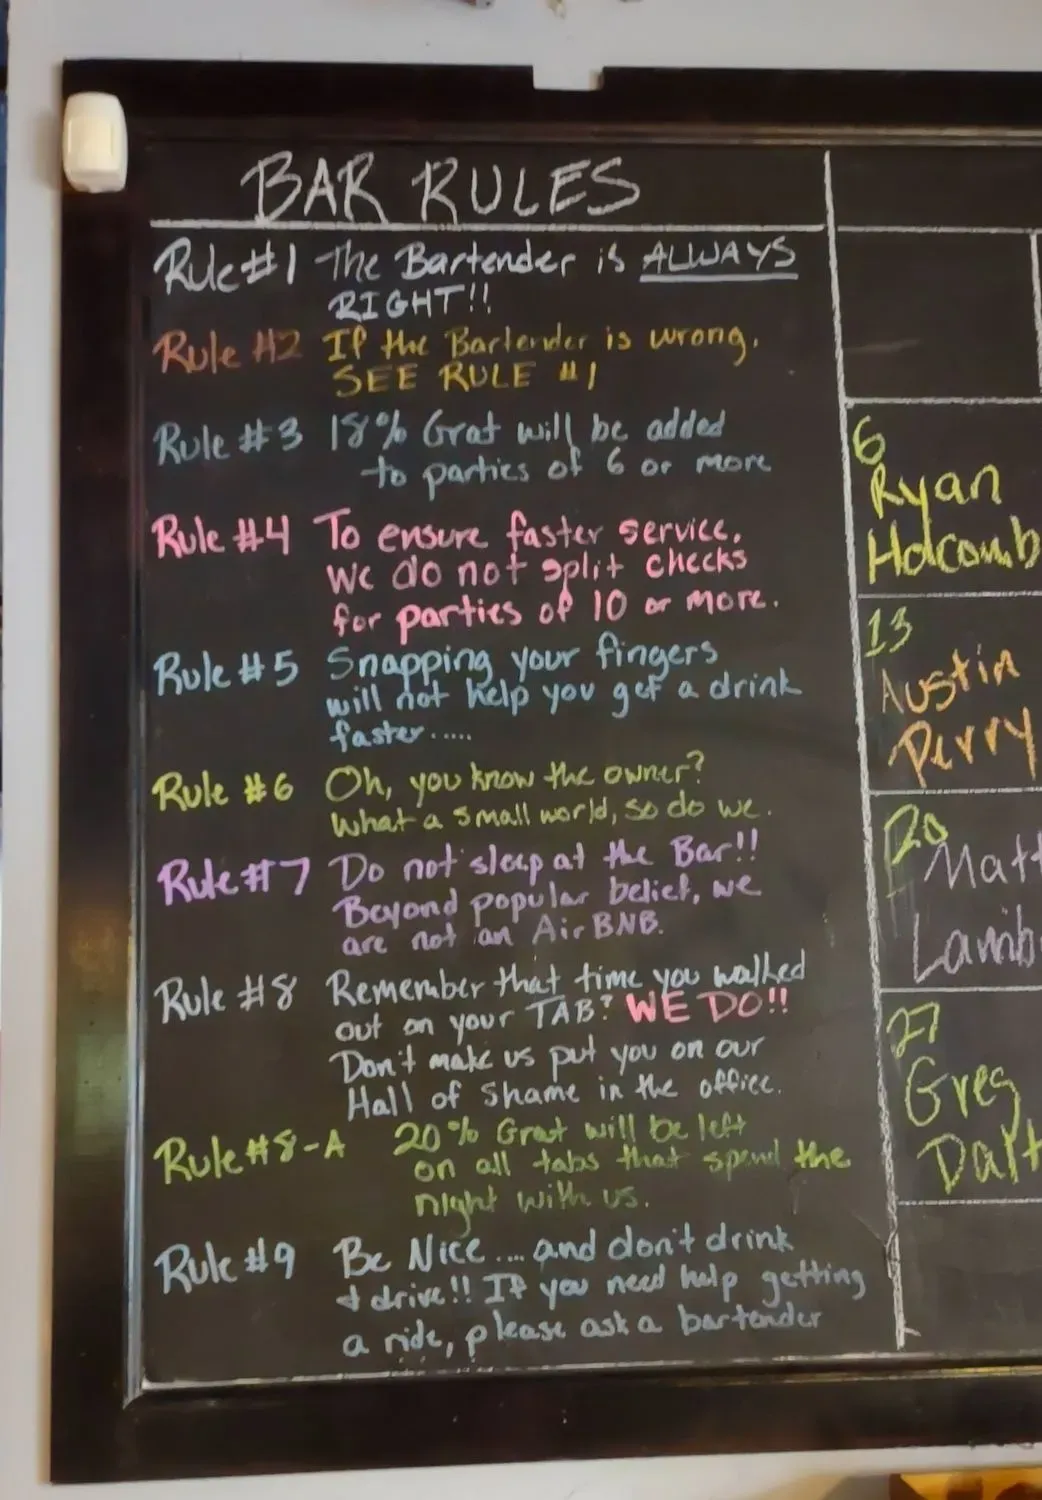 BAR RULES
Rule #1 The Bartender is ALWAYS
RIGHT!!
Rule #2 If the Bartender is wrong.
SEE RULE #1
Rule #3 18% Grat will be added
to parties of 6 or more
Rule #4 To ensure faster service,
We do not split checks
for parties of 10 or more.
Rule #5 Snapping your fingers
will not help you get a drink
faster.....
Rule #6 Oh, you know the owner?
What a small world, so do we.
Rule #7 Do not sleep at the Bar!!
Beyond popular belief, we
are not an AirBNB.
Rule #8 Remember that time you walked
out on your TAB? WE DO!!
Don't make us put you on our
Hall of Shame in the office.
Rule #8-A 20% Grat will be left
on all tabs that spend the
night with us.
Rule #9 Be Nice.... and don't drink
& drive!! If you need help getting
a ride, please ask a bartender
6
Ryan
Holcomb
13
Austin
Perry
20
Matt
Lamb
27
Greg
Dalt